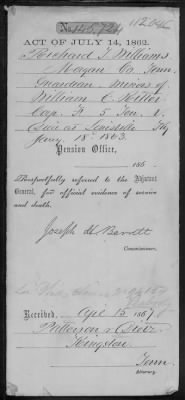 No. 145.724
11204
ACT OF JULY 14, 1862.
Richard J. Williams
Morgan Co. Tenn.
Guardian Minors of
William C. Kitts
Cap. F 5 Ten. I.
Died at Louisville Ky
Jany 18th 1863.
Pension Office,
186 .
Respectfully referred to the Adjutant
General, for official evidence of service
and death.
Joseph H. Barrett
Commissioner.
Received, Apl 15 1867
Patterson &
Kingston
Tenn
Attorney.